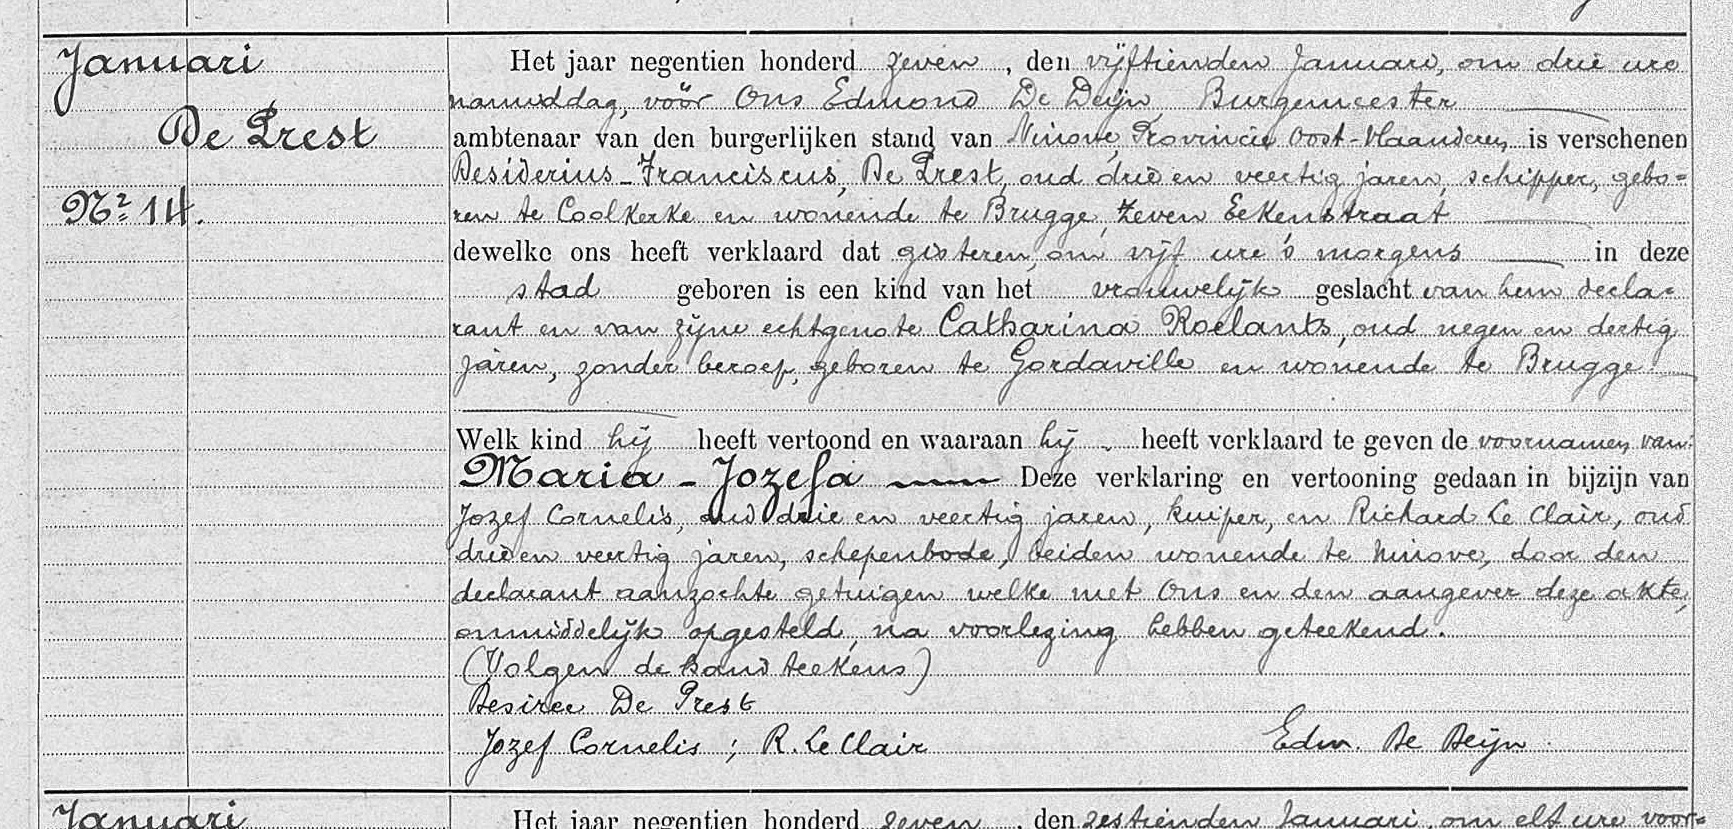 Januari
De Prest
Nr 14.
Het jaar negentien honderd zeven, den vijftienden Januari, om drie ure
namiddag, vóór Ons Edmond De Deijn Burgemeester
ambtenaar van den burgerlijken stand van Ninove, Provincie Oost-Vlaanderen, is verschenen
Desiderius-Franciscus, De Prest, oud drie en veertig jaren, schipper, gebo=
ren te Coolkerke en wonende te Brugge, zeven Eekenstraat
dewelke ons heeft verklaard dat gisteren, om vijf ure 's morgens in deze
stad geboren is een kind van het vrouwelijk geslacht van hem decla=
rant en van zijne echtgenote Catharina Roelants, oud negen en dertig
jaren, zonder beroep, geboren te Gordaville en wonende te Brugge
Welk kind hij heeft vertoond en waaraan hij heeft verklaard te geven de voornamen van:
Maria - Jozefa Deze verklaring en vertooning gedaan in bijzijn van
Jozef Cornelis, oud drie en veertig jaren, kuiper, en Richard Le Clair, oud
drie en veertig jaren, schepenbode, beiden wonende te Ninove, door den
declarant aanzochte getuigen welke met Ons en den aangever deze akte,
onmiddelijk opgesteld, na voorlezing hebben geteekend.
(Volgen de handteekens)
Desiree De Prest
Jozef Cornelis ; R. Le Clair Edm. De Deijn
Januari
Het jaar negentien honderd zeven, den zestienden Januari, om elf ure voor=